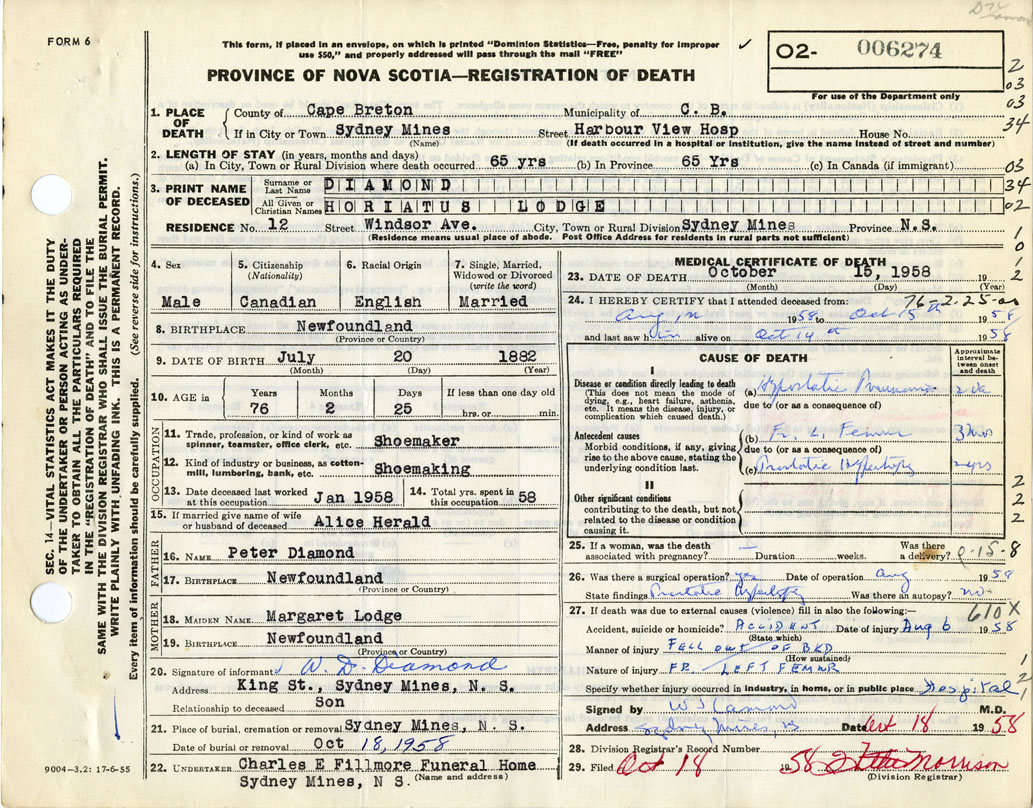 FORM 6
This form, if placed in an envelope, on which is printed "Dominion Statistics—Free, penalty for improper
use $50," and properly addressed will pass through the mail "FREE"
PROVINCE OF NOVA SCOTIA—REGISTRATION OF DEATH
02- 006274
For use of the Department only
2
03
34
1. PLACE OF DEATH
County of Cape Breton Municipality of C. B.
If in City or Town Sydney Mines Street Harbour View Hosp House No.
(Name) (If death occurred in a hospital or institution, give the name instead of street and number)
2. LENGTH OF STAY (in years, months and days)
(a) In City, Town or Rural Division where death occurred 65 yrs (b) In Province 65 Yrs (c) In Canada (if immigrant)
03
3. PRINT NAME OF DECEASED
Surname or Last Name DIAMOND
34
All Given or Christian Names HORIATUS LODGE
02
RESIDENCE No. 12 Street Windsor Ave. City, Town or Rural Division Sydney Mines Province N.S.
(Residence means usual place of abode. Post Office Address for residents in rural parts not sufficient)
1
0
1
2
4. Sex
Male
5. Citizenship
(Nationality)
Canadian
6. Racial Origin
English
7. Single, Married,
Widowed or Divorced
(write the word)
Married
8. BIRTHPLACE Newfoundland
(Province or Country)
9. DATE OF BIRTH July 20 1882
(Month) (Day) (Year)
10. AGE in
Years Months Days If less than one day
76 2 25 hrs. or min.
OCCUPATION
11. Trade, profession, or kind of work as
spinner, teamster, office clerk, etc. Shoemaker
12. Kind of industry or business, as cotton-
mill, lumbering, bank, etc. Shoemaking
13. Date deceased last worked
at this occupation Jan 1958
14. Total yrs. spent in
this occupation 58
15. If married give name of wife
or husband of deceased Alice Herald
FATHER
16. NAME Peter Diamond
17. BIRTHPLACE Newfoundland
(Province or Country)
MOTHER
18. MAIDEN NAME Margaret Lodge
19. BIRTHPLACE Newfoundland
(Province or Country)
20. Signature of informant W. D. Diamond
Address King St., Sydney Mines, N. S.
Relationship to deceased Son
21. Place of burial, cremation or removal Sydney Mines, N. S.
Date of burial or removal Oct 18, 1958
22. UNDERTAKER Charles E Fillmore Funeral Home
Sydney Mines, N S. (Name and address)
MEDICAL CERTIFICATE OF DEATH
23. DATE OF DEATH October 15, 1958 19
(Month) (Day) (Year)
24. I HEREBY CERTIFY that I attended deceased from: 76-2-25-00
Aug 1958 to Oct 15th 1958
and last saw him alive on Oct 14th 1958
CAUSE OF DEATH
Approximate
interval be-
tween onset
and death
I
Disease or condition directly leading to death
(This does not mean the mode of
dying, e.g., heart failure, asthenia,
etc. It means the disease, injury, or
complication which caused death.)
(a) Hypostatic Pneumonia
due to (or as a consequence of)
Antecedent causes
Morbid conditions, if any, giving
rise to the above cause, stating the
underlying condition last.
(b) Fr. L. Femur 3 mos
due to (or as a consequence of)
(c) Prostatic Hypertrophy 2 yrs
II
Other significant conditions
contributing to the death, but not
related to the disease or condition
causing it.
2
2
2
25. If a woman, was the death
associated with pregnancy? Duration weeks. Was there
a delivery? 9-15-8
26. Was there a surgical operation? yes Date of operation Aug 1958
State findings Prostatic Hypertrophy Was there an autopsy? no
27. If death was due to external causes (violence) fill in also the following:— 610X
Accident, suicide or homicide? ACCIDENT Date of injury Aug 6 1958
(State which)
Manner of injury FELL OUT OF BED
(How sustained)
Nature of injury FR. LEFT FEMUR
1
2
Specify whether injury occurred in industry, in home, or in public place Hospital
Signed by M.D.
Address Sydney Mines, NS Date Oct 18 1958
28. Division Registrar's Record Number
29. Filed Oct 18 1958 Morrison
(Division Registrar)
SEC. 14—VITAL STATISTICS ACT MAKES IT THE DUTY
OF THE UNDERTAKER OR PERSON ACTING AS UNDER-
TAKER TO OBTAIN ALL THE PARTICULARS REQUIRED
IN THE "REGISTRATION OF DEATH" AND TO FILE THE
SAME WITH THE DIVISION REGISTRAR WHO SHALL ISSUE THE BURIAL PERMIT.
WRITE PLAINLY WITH UNFADING INK. THIS IS A PERMANENT RECORD.
Every item of information should be carefully supplied. (See reverse side for instructions.)
9004-3.2: 17-6-55